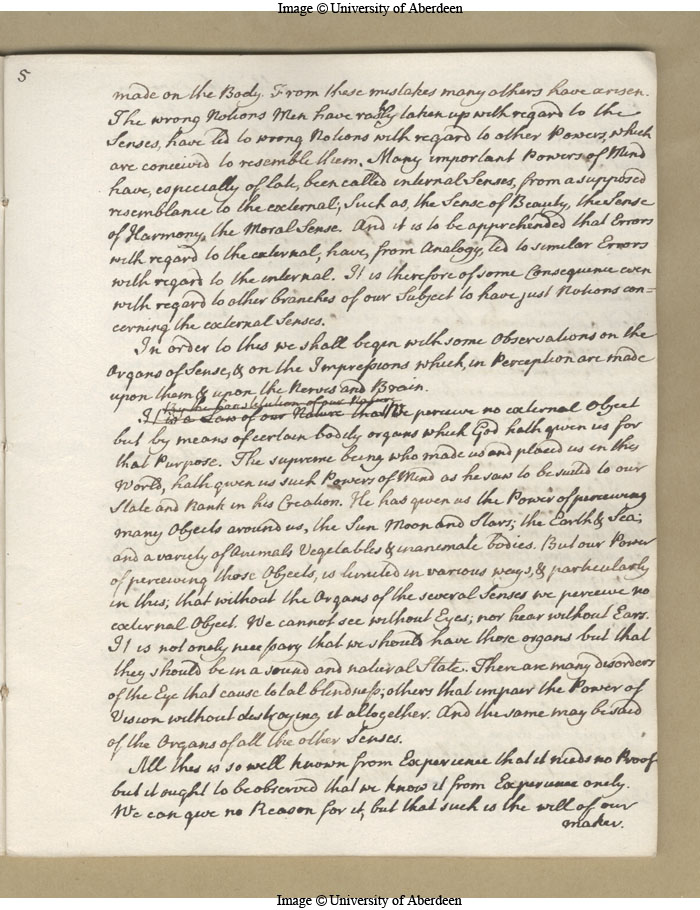 Image © University of Aberdeen
5
made on the Body. From these mistakes many others have arisen.
The wrong Notions Men have rashly taken up with regard to the
Senses, have led to wrong Notions with regard to other Powers, which
are conceived to resemble them. Many important Powers of Mind
have, especially of late, been called internal Senses, from a supposed
resemblance to the external; Such as, the Sense of Beauty, the Sense
of Harmony, the Moral Sense. And it is to be apprehended that Errors
with regard to the external, have, from Analogy, led to similar Errors
with regard to the internal. It is therefore of some Consequence even
with regard to other branches of our Subject to have just Notions con=
cerning the external Senses.
In order to this we shall begin with some Observations on the
Organs of Sense, & on the Impressions which, in Perception are made
upon them & upon the Nerves and Brain.
By the Constitution of our Nature
It is a Law of our Nature that We perceive no external Object
but by means of certain bodily organs which God hath given us for
that Purpose. The supreme being who made us and placed us in this
World, hath given us such Powers of Mind as he saw to be suited to our
State and Rank in his Creation. He has given us the Power of perceiving
many Objects around us, the Sun Moon and Stars; the Earth & Sea;
and a variety of Animals Vegetables & inanimate bodies. But our Power
of perceiving those Objects, is limited in various ways, & particularly
in this; that without the Organs of the several Senses we perceive no
external Object. We cannot see without Eyes; nor hear without Ears.
It is not onely necessary that we should have those organs but that
they should be in a sound and natural State. There are many disorders
of the Eye that cause total blindness; others that impair the Power of
Vision without destroying it altogether. And the same may be said
of the Organs of all the other Senses.
All this is so well known from Experience that it needs no Proof
but it ought to be observed that we know it from Experience onely.
We can give no Reason for it, but that such is the will of our
maker.
Image © University of Aberdeen